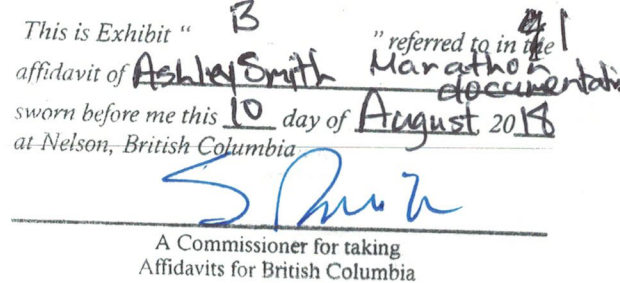 This is Exhibit " B " referred to in the #1
affidavit of Ashley Smith Marathon documentation
sworn before me this 10 day of August 2018
at Nelson, British Columbia
A Commissioner for taking
Affidavits for British Columbia